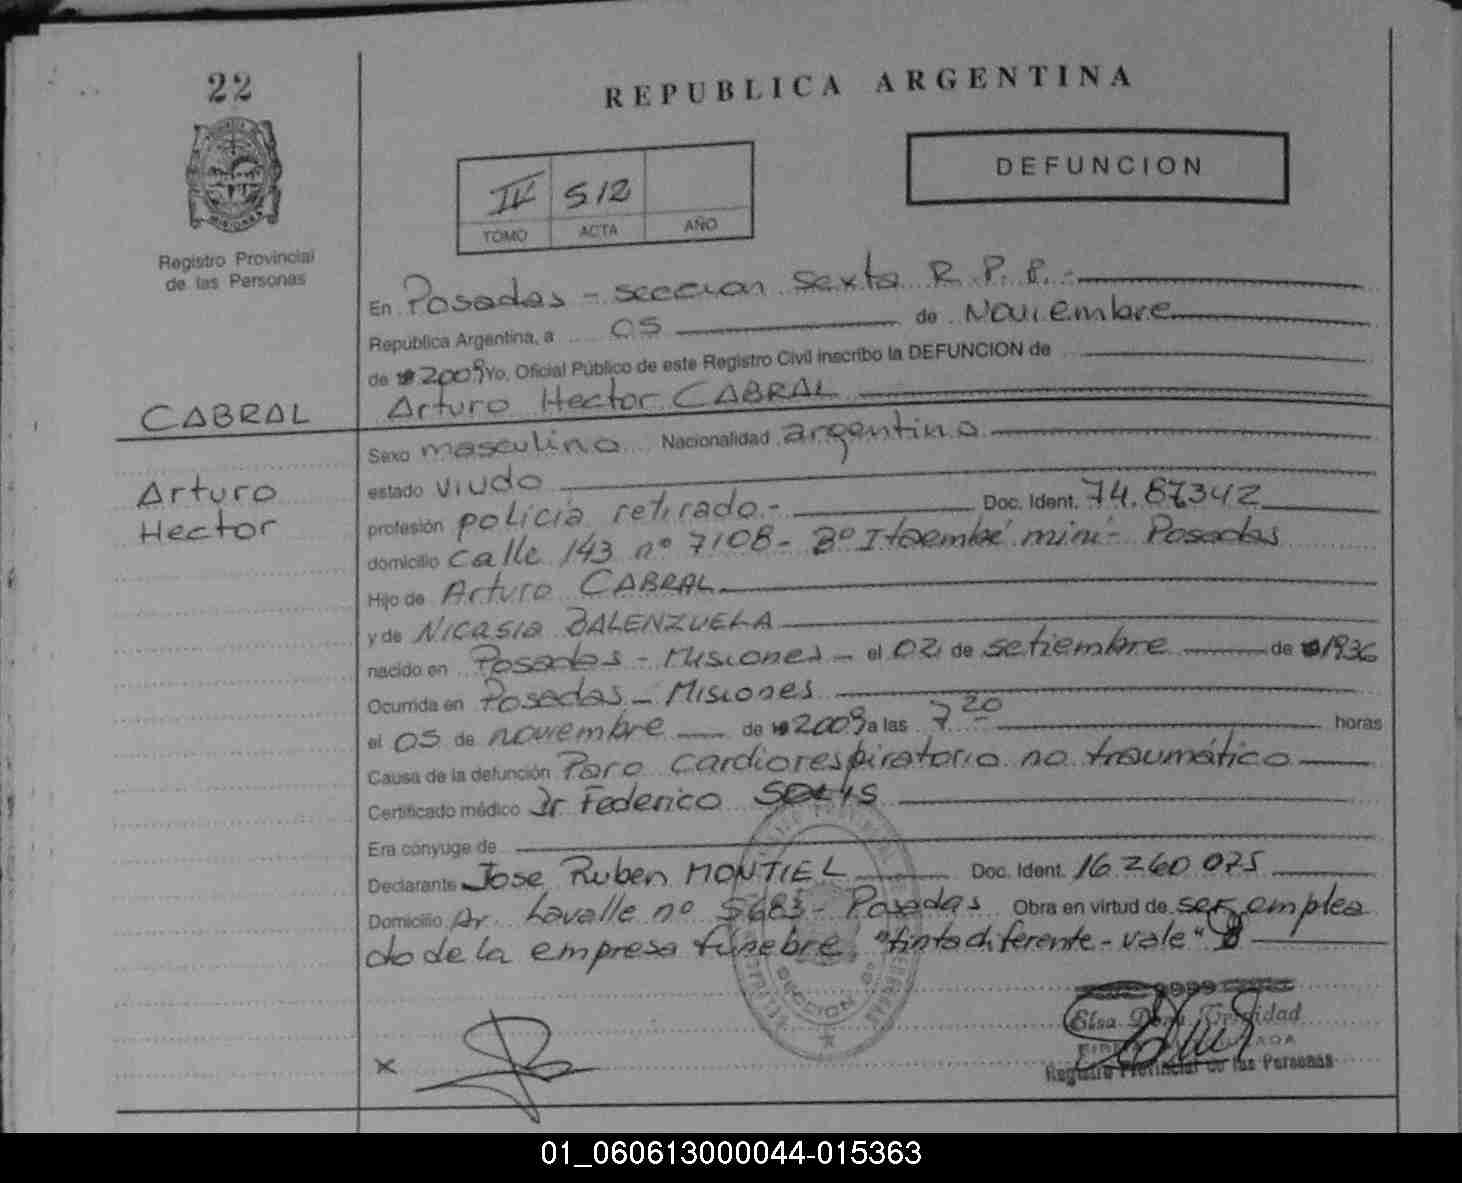 22
REPUBLICA ARGENTINA
DEFUNCION
IV 512
TOMO ACTA AÑO
MISIONES
Registro Provincial
de las Personas
En Posadas - seccion sexta R. P. P. -
República Argentina, a 05 de Noviembre
de 2009 Yo, Oficial Público de este Registro Civil inscribo la DEFUNCION de
CABRAL Arturo Hector CABRAL
Sexo masculino Nacionalidad argentina
Arturo
Hector
estado viudo
profesión policia retirado.- Doc. Ident. 74.87342
domicilio calle 143 nº 7108 - Bº Itaembé mini - Posadas
Hijo de Arturo CABRAL
y de Nicasia BALENZUELA
nacido en Posadas - Misiones - el 02 de setiembre de 1936
Ocurrida en Posadas - Misiones
el 05 de noviembre de 2009 a las 7 20 horas
Causa de la defunción Paro cardiorespiratorio no traumático
Certificado médico Dr Federico
Era cónyuge de
Declarante Jose Ruben MONTIEL Doc. Ident. 16.260.075
Domicilio Av. Lavalle nº 5683 - Posadas Obra en virtud de ser emplea
do de la empresa fúnebre, "tinta diferente - vale"
SECCION 6º
Elsa Trinidad
Registro Provincial de las Personas
x
01_060613000044-015363